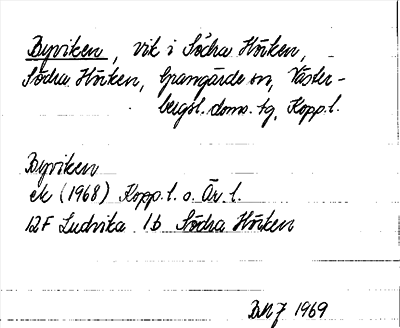 Byviken, vik i Södra Hörken,
Södra Hörken, Grangärde sn, Väster-
bergsl. doms. tg, Kopp. l.
Byviken
ek (1968) Kopp. l. o. Ör. l.
12F Ludvika 1b Södra Hörken
1969